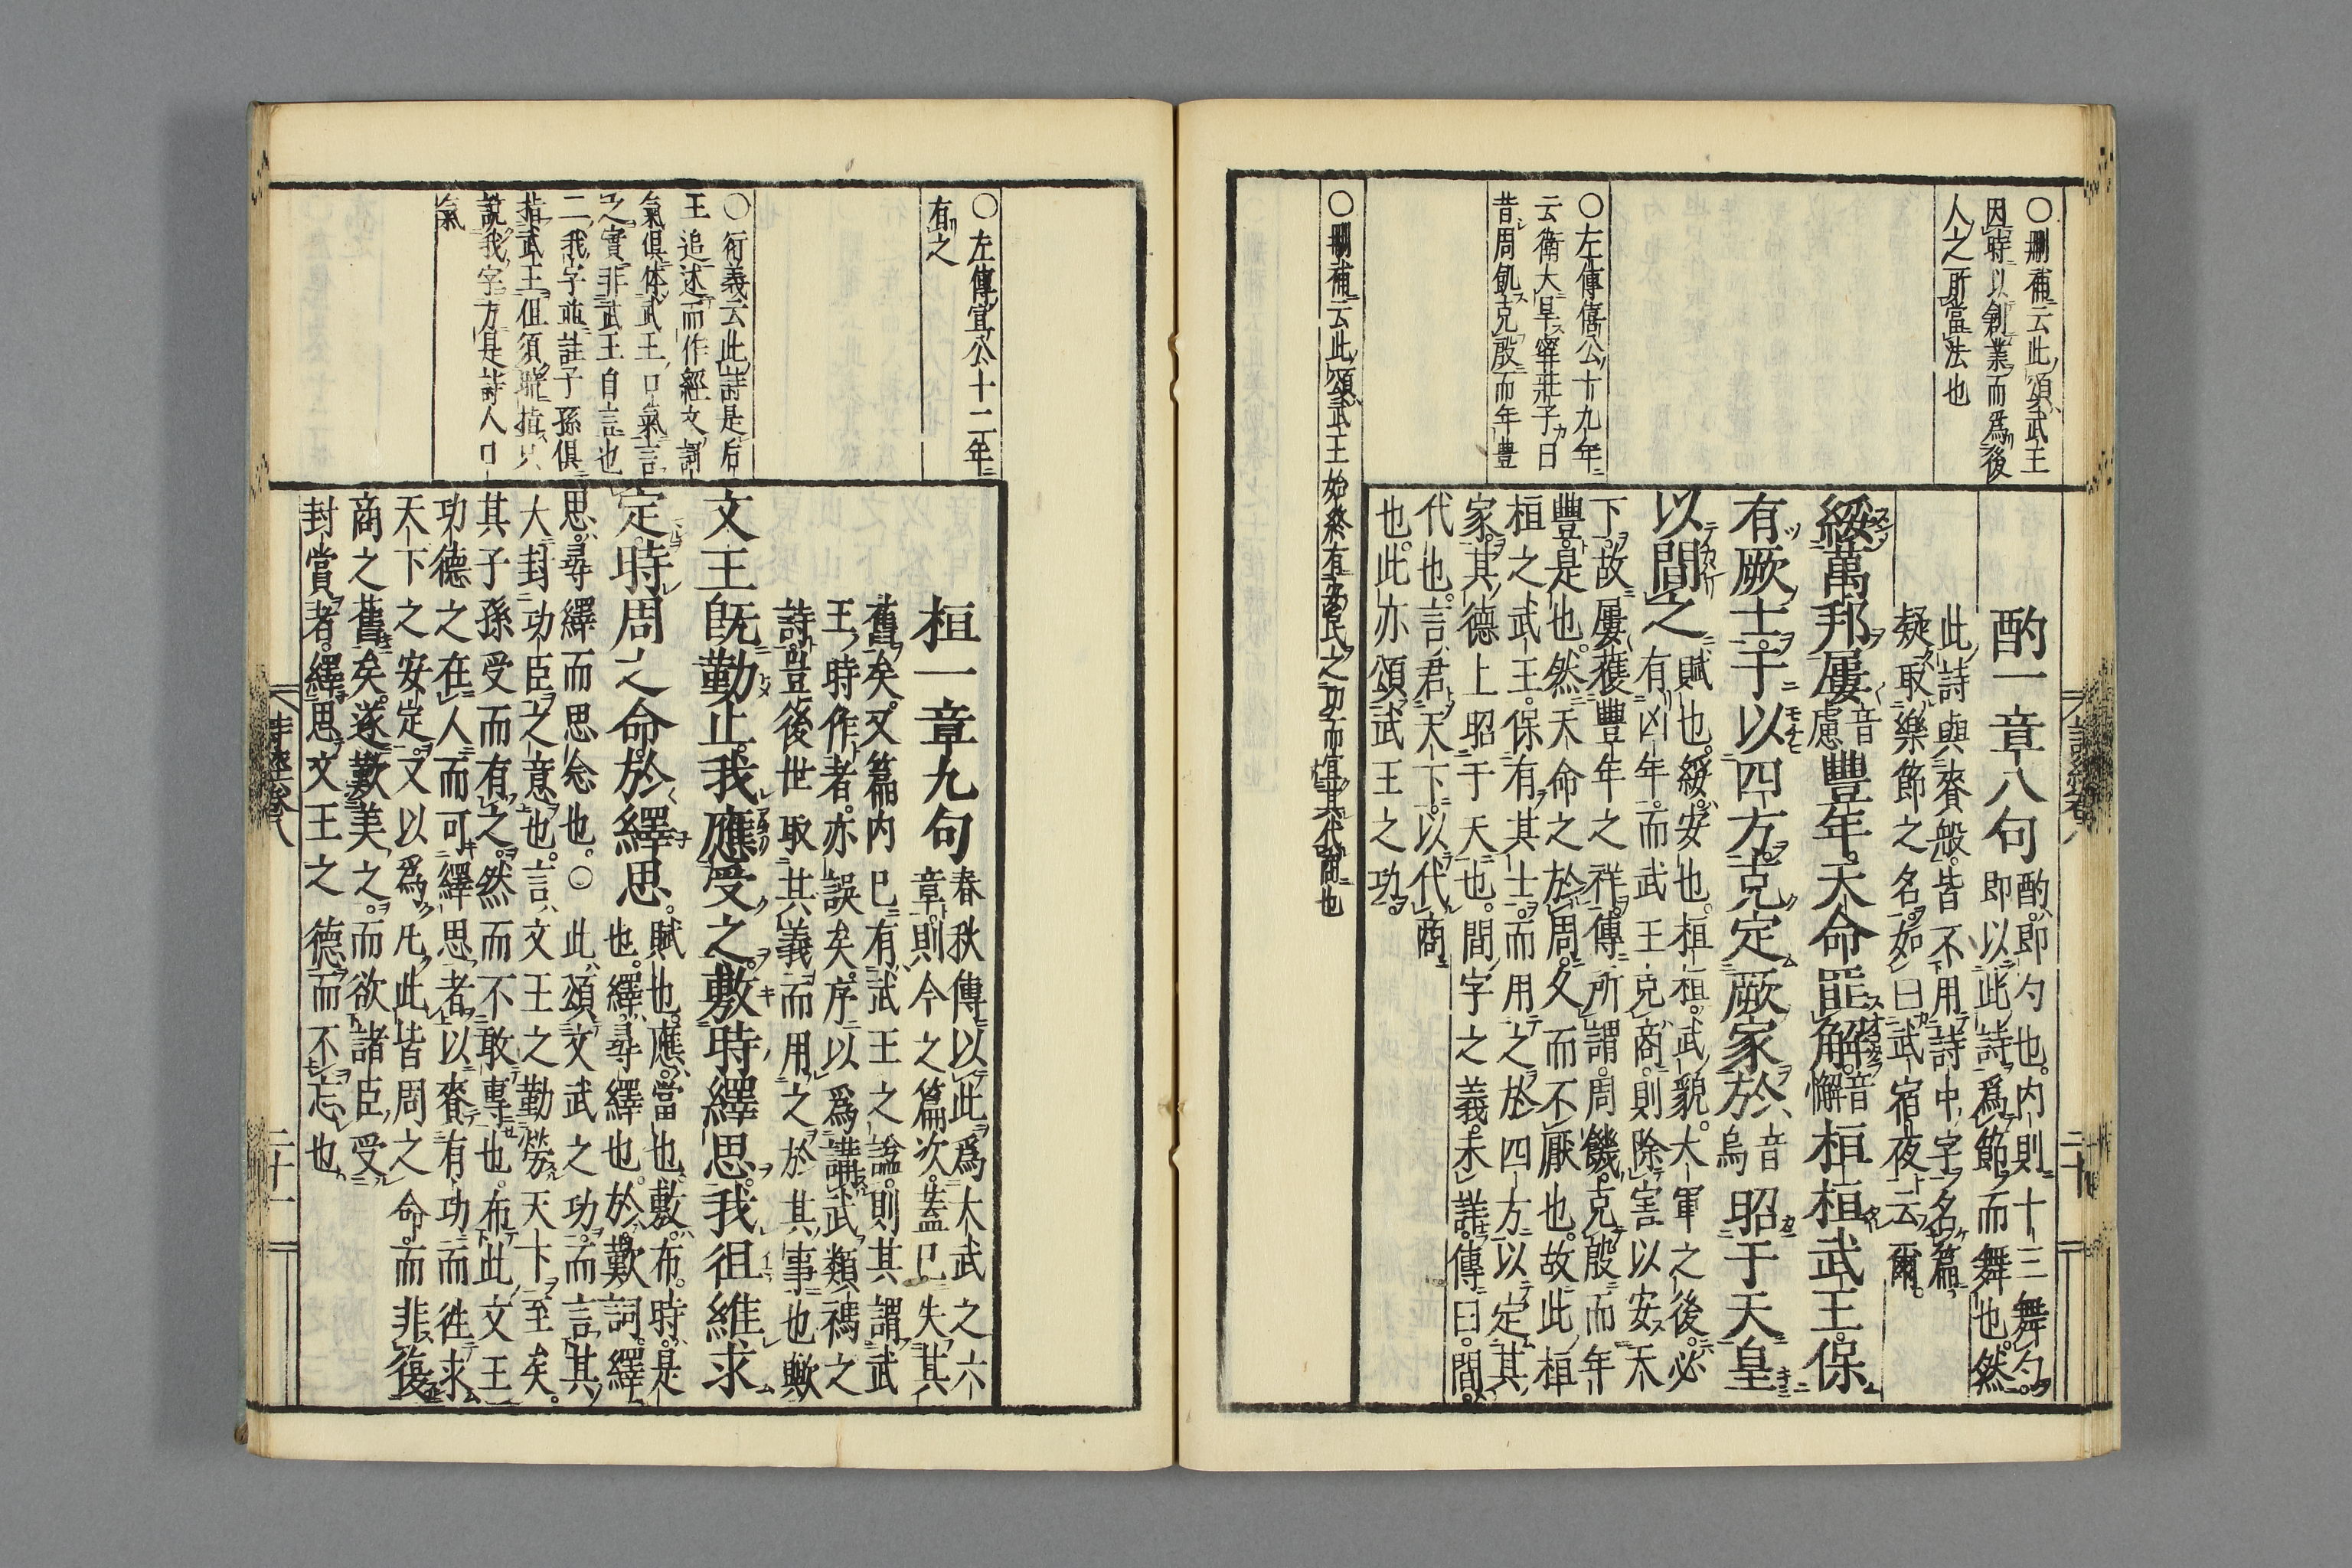 ○刪補云此頌武王
因時以創業而爲後
人之所當法也
○左傳僖公十九年
云衛大旱甯莊子曰
昔周飢克殷而年豐
○刪補云此頌武王始終有安民之功而宜其代商也
酌一章八句 酌即勺也内則十三舞勺
即以此詩爲節而舞也然
此詩與賚般皆不用詩中字名篇
疑取樂節之名如曰武宿夜云爾
綏萬邦屢 音慮 豐年天命匪解 音懈 桓桓武王保
有厥士于以四方克定厥家於 音烏 昭于天皇
以間之 賦也綏安也桓桓武貌大軍之後必
有凶年而武王克商則除害以安天
下故屢獲豐年之祥傳所謂周饑克殷而年
豐是也然天命之於周久而不厭也故此桓
桓之武王保有其士而用之於四方以定其
家其德上昭于天也間字之義未詳傳曰間
代也言君天下以代商
也此亦頌武王之功
詩經卷八
二十
○左傳宣公十二年
有之
○衍義云此詩是后
王追述而作經文詞
氣俱体武王口氣言
之實非武王自言也
二我字並註子孫俱
指武王但須
說我字方是詩人口
氣
桓一章九句 春秋傳以此爲大武之六
章則今之篇次蓋已失其
舊矣又篇内已有武王之謚則其謂武
王時作者亦誤矣序以爲講武類禡之
詩豈後世取其義而用之於其事也歟
文王既勤止我應受之敷時繹思我徂維求
定時周之命於繹思 賦也應當也敷布時是
也繹尋繹也於歎詞繹
思尋繹而思念也○此頌文武之功而言其
大封功臣之意也言文王之勤勞天下至矣
其子孫受而有之然而不敢專也布此文王
功德之在人而可繹思者以賚有功而徃求
天下之安定又以爲凡此皆周之命而非復
商之舊矣遂歎美之而欲諸臣受
封賞者繹思文王之德而不忘也
詩經卷八
二十一